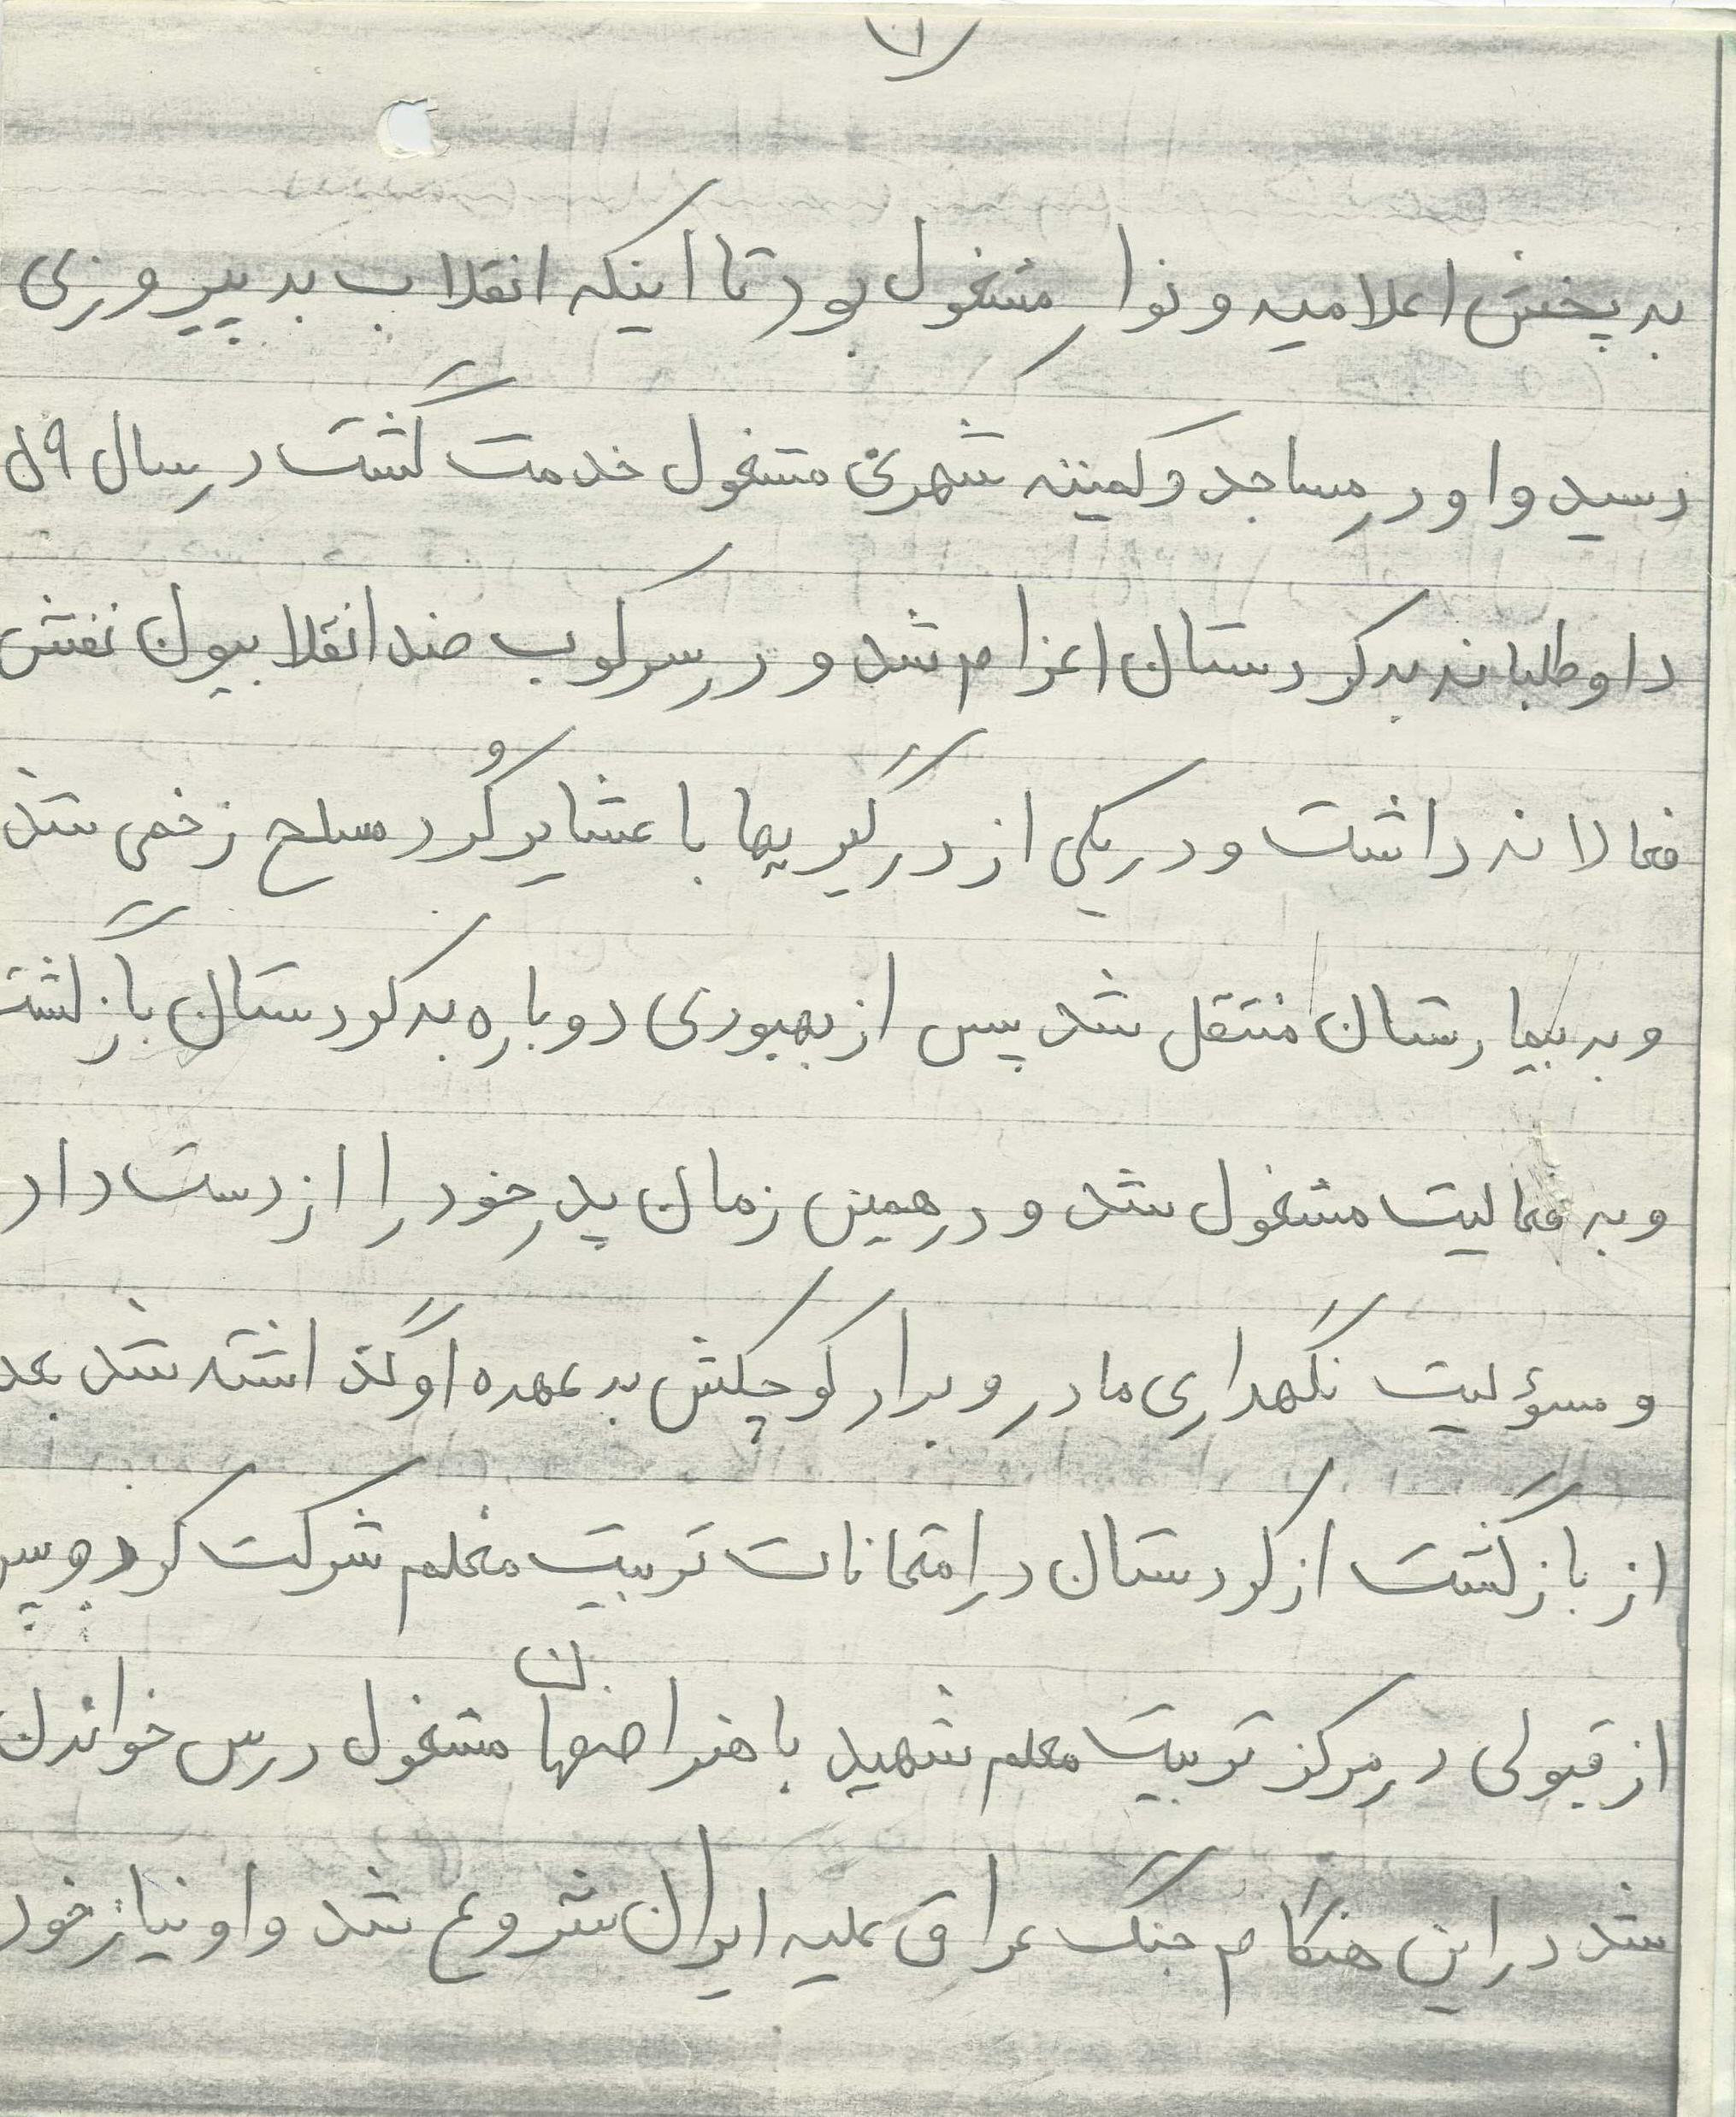 به پخش اعلامیه و نوار مشغول بود تا اینکه انقلاب به پیروزی
رسید و او در مساجد و کمیته شهری مشغول خدمت گشت در سال ۵۹
داوطلبانه به کردستان اعزام شد و در سرکوب ضد انقلابیون نقش
فعالانه داشت و در یکی از درگیریها با عشایر کُرد مسلح زخمی شد
و به بیمارستان منتقل شد پس از بهبودی دوباره به کردستان بازگشت
و به فعالیت مشغول شد و در همین زمان پدر خود را از دست داد
و مسؤلیت نگهداری مادر و برادر کوچکش به عهده او گذاشته شد بعد
از بازگشت از کردستان در امتحانات تربیت معلم شرکت کرد و پس
از قبولی در مرکز تربیت معلم شهید باهنر اصفهان مشغول درس خواندن
شد در این هنگام جنگ عراق علیه ایران شروع شد و او نیاز خود